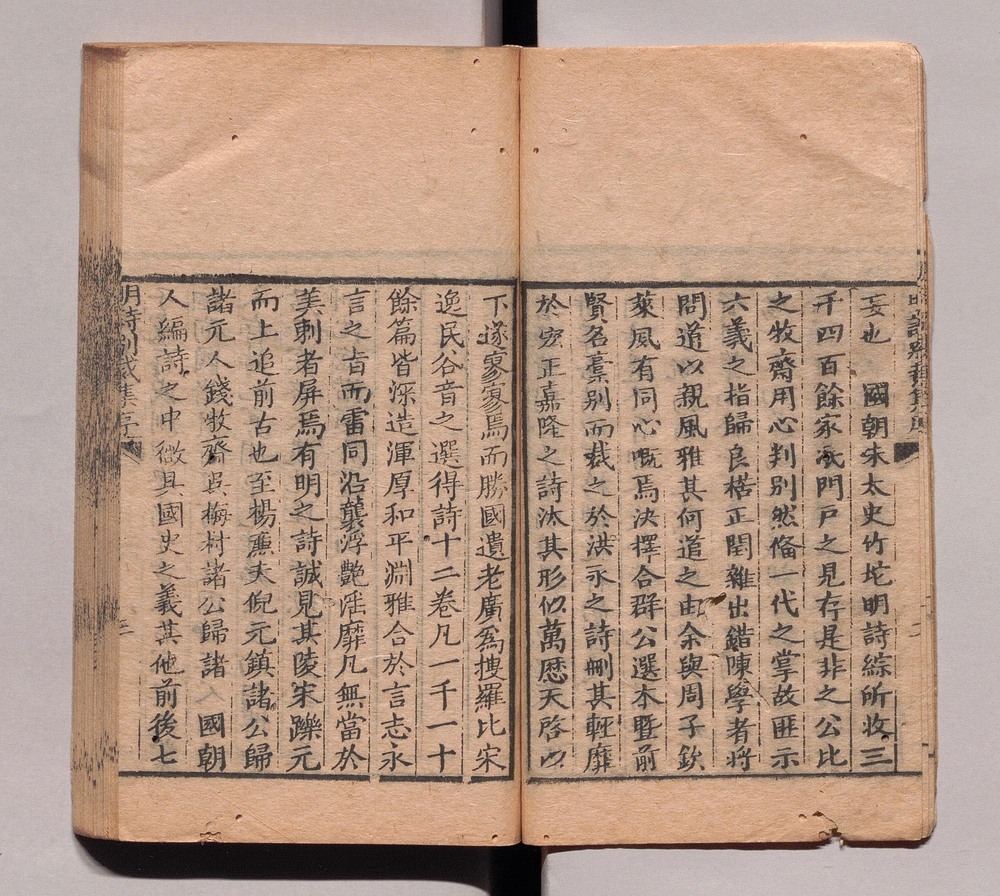 妄也　國朝朱太史竹垞明詩綜所收三
千四百餘家泯門戸之見存是非之公比
之牧齋用心判別然備一代之掌故匪示
六義之指歸良楛正閏雜出錯陳學者將
問道以親風雅其何道之由余與周子欽
萊風有同心嘅焉決擇合群公選本暨前
賢名藁別而裁之於洪永之詩刪其輕靡
於宏正嘉隆之詩汰其形似萬厯天啓以
下遂寥寥焉而勝國遺老廣爲搜羅比宋
逸民谷音之選得詩十二卷凡一千一十
餘篇皆㴱造渾厚和平淵雅合於言志永
言之旨而雷同沿襲浮艷淫靡凡無當於
美刺者屏焉有明之詩誠見其陵宋躒元
而上追前古也至楊亷夫倪元鎮諸公歸
諸元人錢牧齋吳梅村諸公歸諸入國朝
人編詩之中微具國史之義其他前後七
明詩別裁集序
三